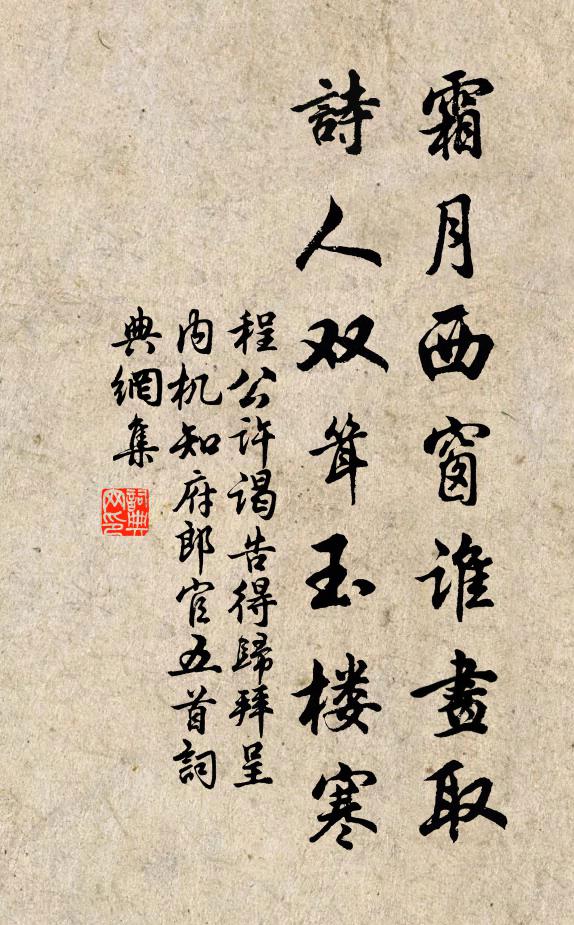 霜月西窗谁畫取
詩人双耸玉楼寒
程公许谒告得歸拜呈
内机知府郎官五首詞
典網集
詞典网印